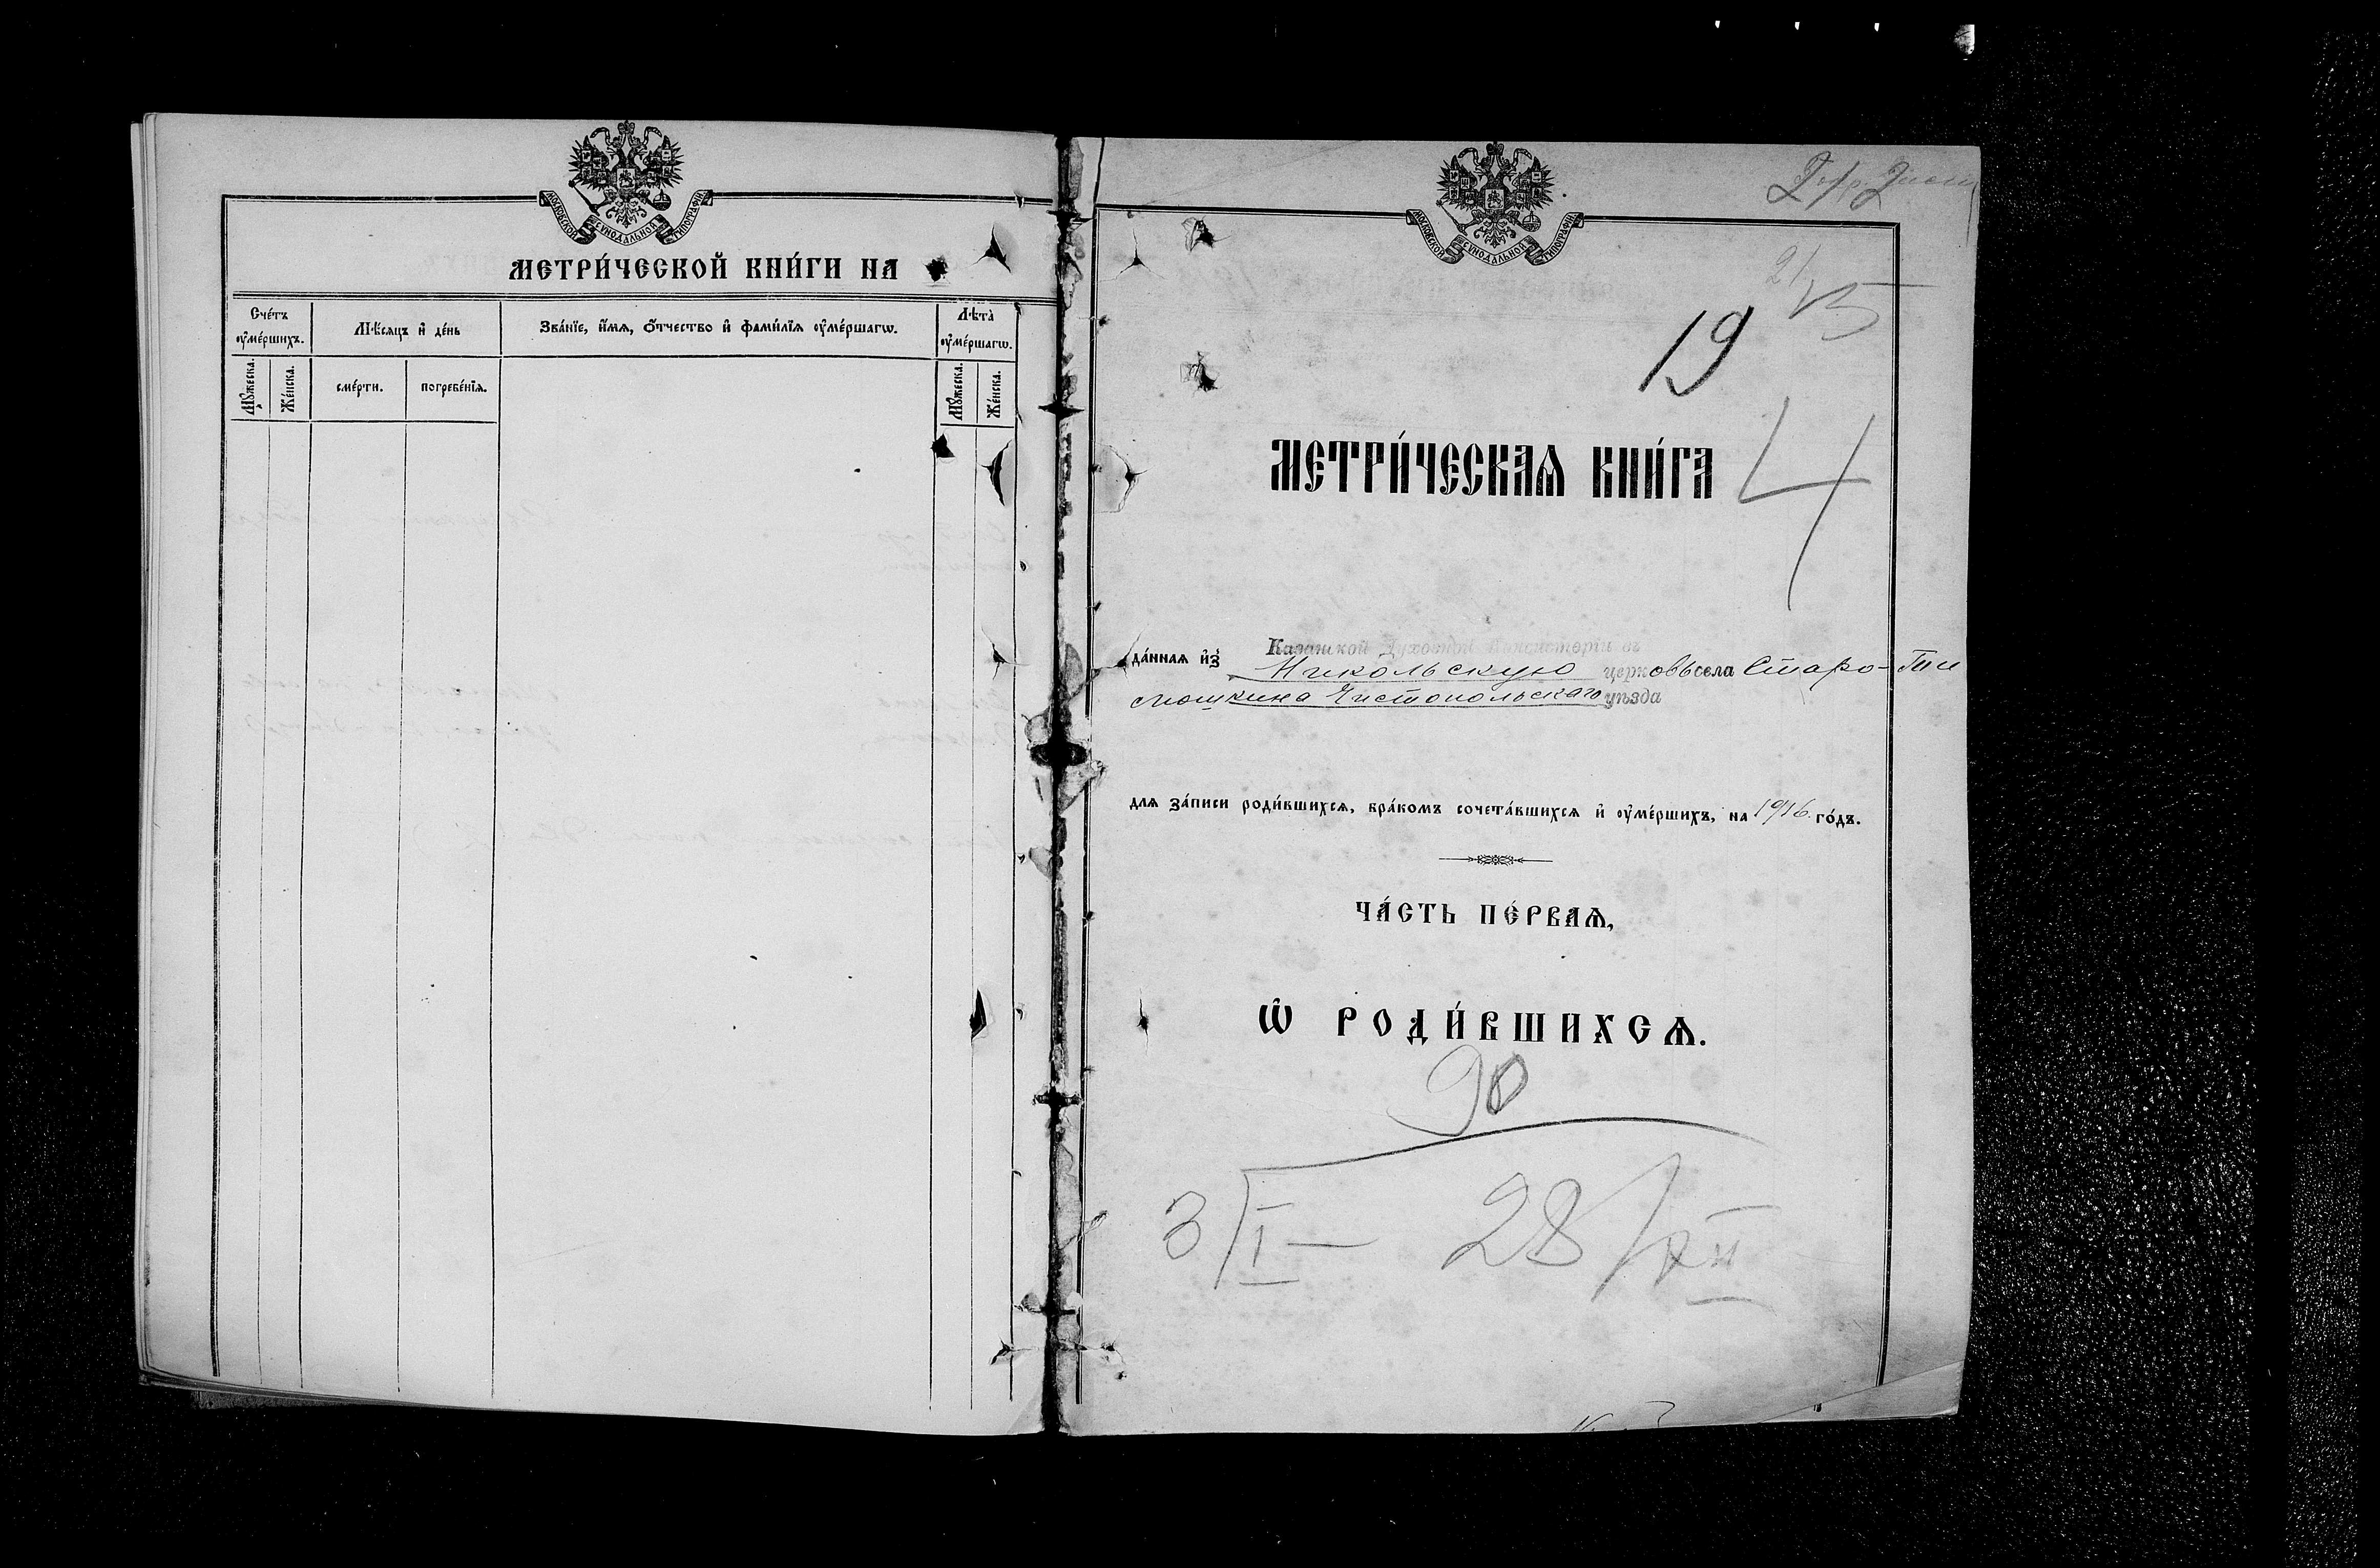 МОСКОВСКОЙ СѴНОДАЛЬНОЙ ТИПОГРАФІИ
МЕТРИ́ЧЕСКОЙ КНИ́ГИ НА
Сче́тъ ᲂу҆ме́ршихъ.
Мѣ́сяцъ и҆ де́нь
Зва́нїе, и҆́мѧ, ѻ҆́тчество и҆ фами́лїѧ ᲂу҆ме́ршагѡ.
Лѣта̀ ᲂу҆ме́ршагѡ.
Мꙋ́жеска.
Же́нска.
сме́рти.
погребе́нїѧ.
Мꙋ́жеска.
Же́нска.
МОСКОВСКОЙ СѴНОДАЛЬНОЙ ТИПОГРАФІИ
19
МЕТРИ́ЧЕСКАѦ КНИ́ГА
4
да́ннаѧ и҆з̾ Казанской Духовной Консисторіи въ
Никольскую церковь села Старо-Ти
смошкина Чистопольскаго уѣзда
длѧ за́писи роди́вшихсѧ, бра́комъ сочета́вшихсѧ и҆ ᲂу҆ме́ршихъ, на 1916 го́дъ.
ЧА́СТЬ ПЕ́РВАѦ,
Ѡ҆ РОДИ́ВШИХСѦ.
90
3/I — 28/XII